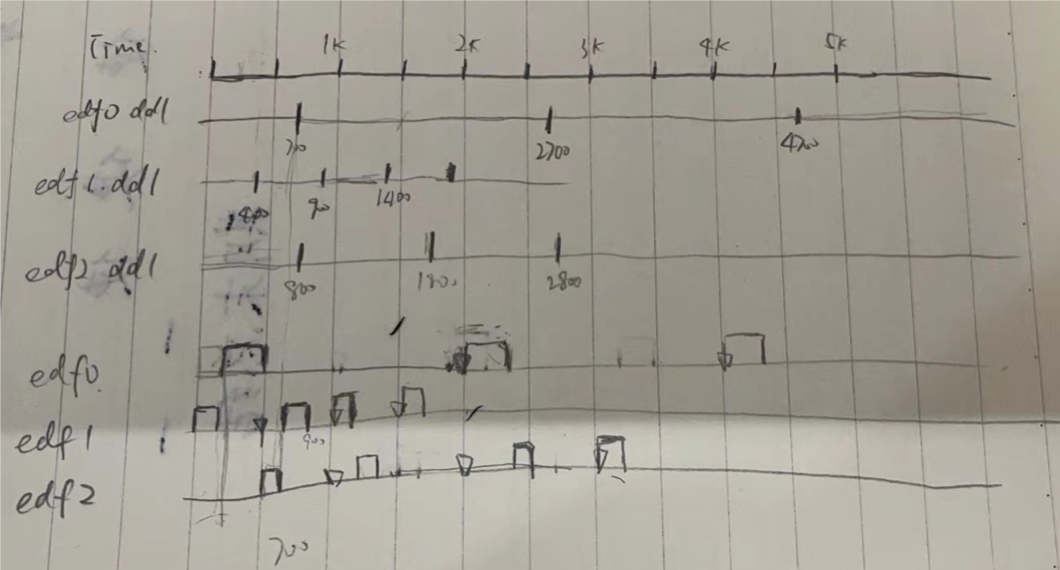 Time. 1K 2K 3K 4K 5K
edf0 ddl
700 2700 4700
edf1 ddl
400 900 1400
edf2 ddl
800 1800 2800
edf0
edf1
900
edf2
700